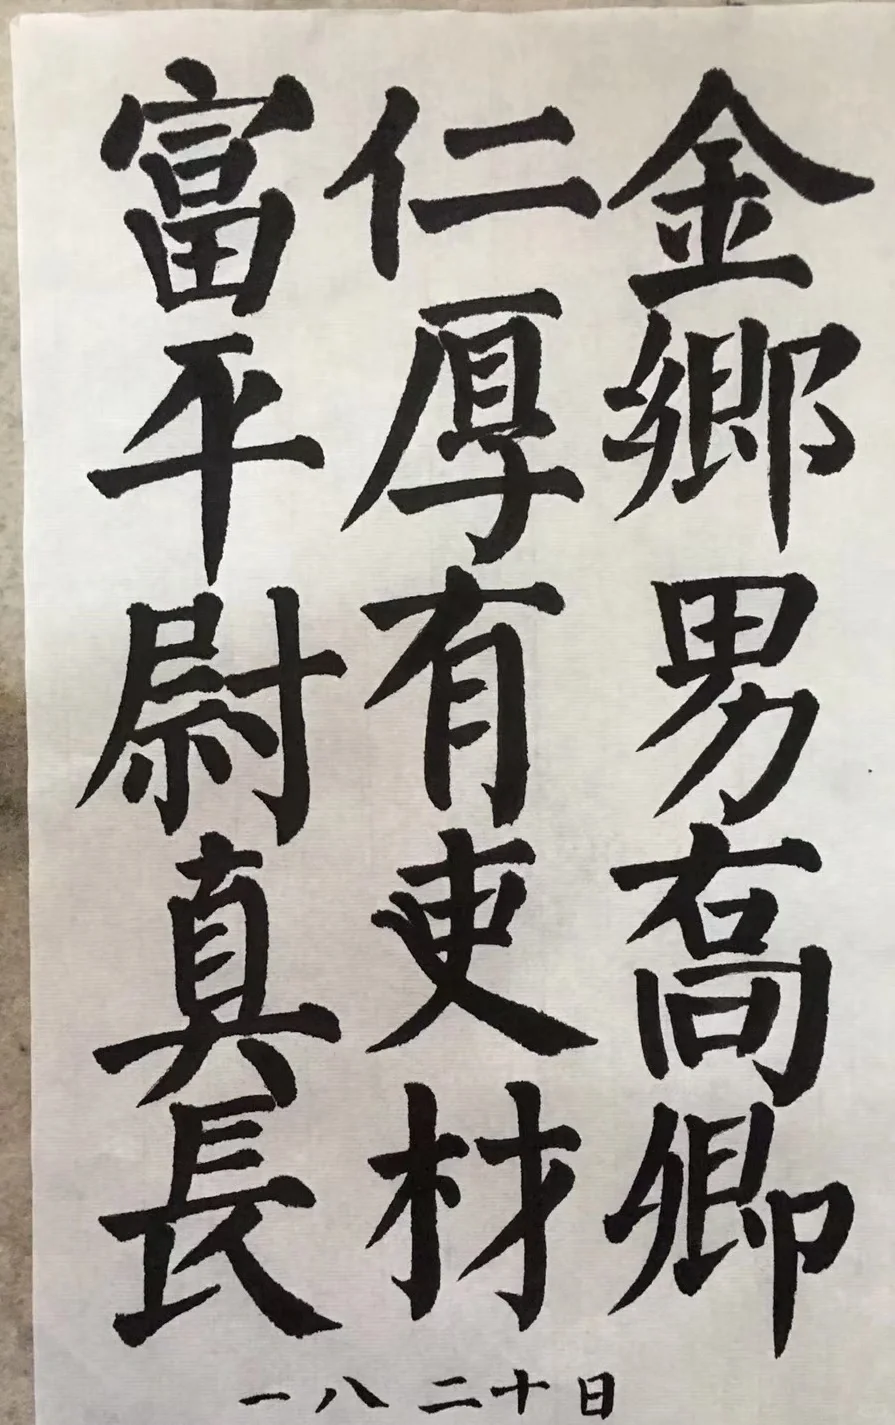 金鄉男喬卿
仁厚有吏材
富平尉真長
一八 二十日